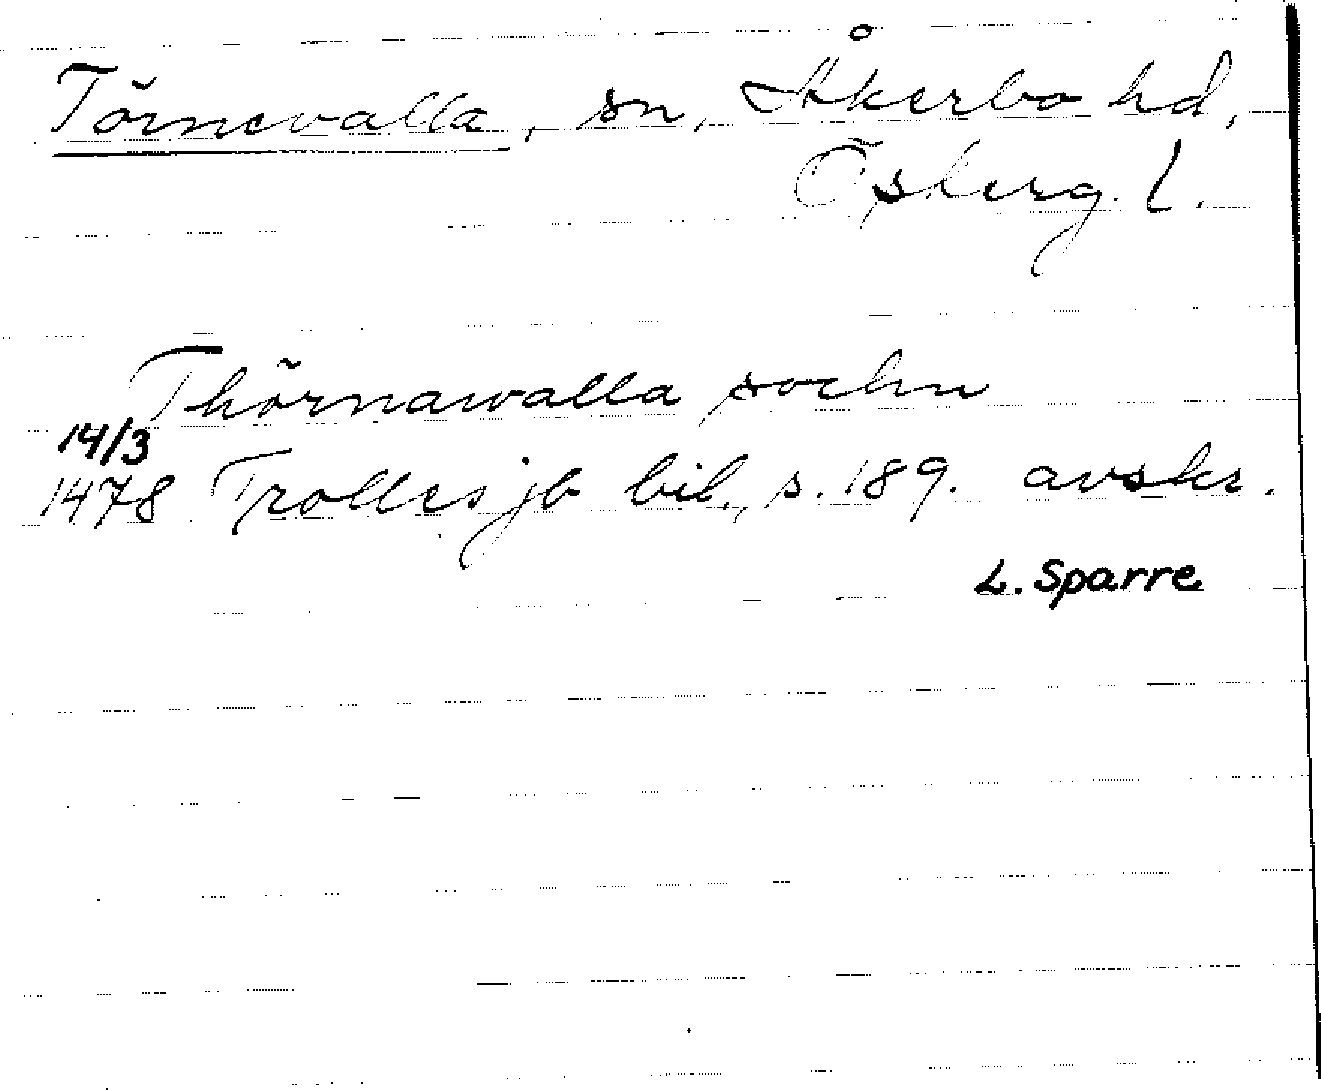 Törnevalla, sn, Åkerbo hd,
Österg. l.
Thörnawalla sochn
14/3
1478 Trolles jb bil., s. 189. avskr.
L. Sparre